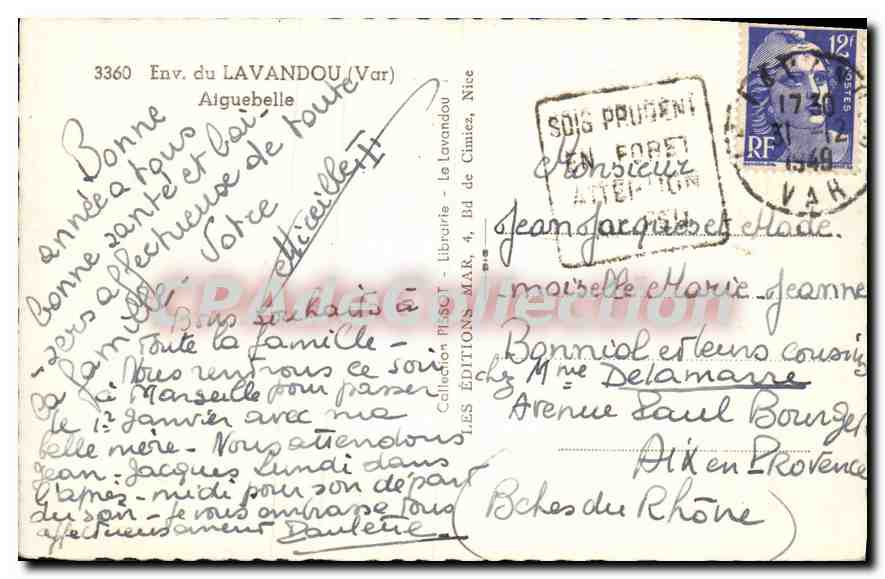 3360 Env. du LAVANDOU (Var)
Aiguebelle
Bonne
année a tous
bonne santé et bai-
-sers affectueuse de toute
la famille Votre
Mireille
Bons souhaits à
Toute la famille -
Nous rentrons ce soir
à Marseille pour passer
le 1er Janvier avec ma
belle mère - Nous attendons
Jean-Jacques Lundi dans
l'après-midi pour son départ
du soir - Je vous embrasse tous
affectueusement
Collection PISSOT - Librairie - Le Lavandou
LES ÉDITIONS MAR, 4, Bd de Cimiez, Nice
SOIS PRUDENT
EN FORET
ATTENTION
FEU
12f
POSTES
RF
17 30
31 12
1949
VAR
Monsieur
Jean Jacques et Made
-moiselle Marie-Jeanne
Bonniol et leurs cousins
chez Mme Delamarre
Avenue Paul Bourget
Aix en Provence
(Bches du Rhône)
CPAdeCollection